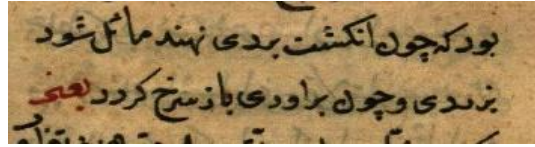 بود که چون انکشت بر وی نهند مائل شود
بزردی و چون براوردی باز سرخ کردد بعضی